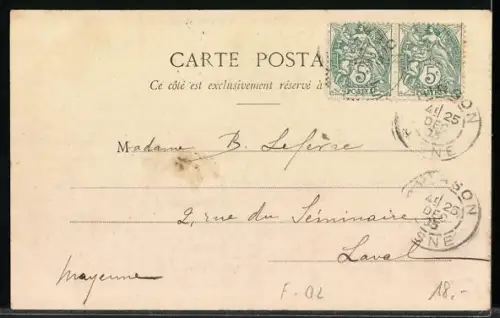 CARTE POSTA
Ce côté est exclusivement réservé à
5 5
POSTES
Madame B. Lefèvre
25
DEC
2, rue du Séminaire
Laval
Mayenne
F-02
18.-